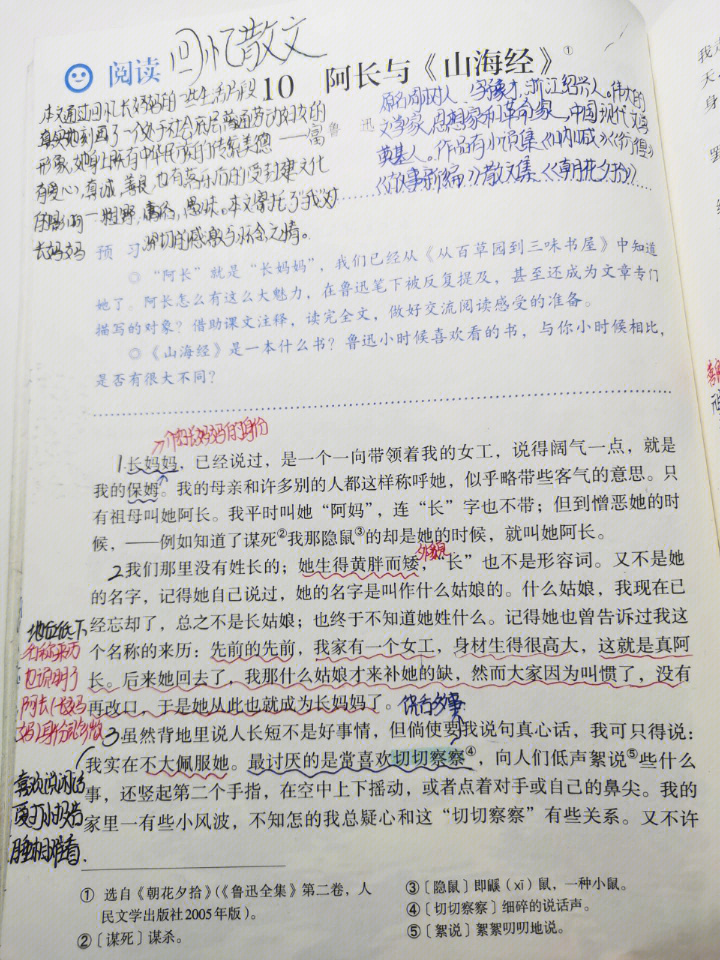 阅读 回忆散文
10 阿长与《山海经》①
鲁迅
本文通过回忆长妈妈的一些生活片段
真实地刻画了一个处于社会底层普通劳动妇女的
形象,她身上既有中华民族的传统美德——富
有爱心,真诚,善良,也有
的影响—粗野,愚昧。本文寄托了我对
长妈妈深切的感激与怀念之情。
原名周树人,字豫才,浙江绍兴人。伟大的
文学家、思想家和革命家,中国现代文学
奠基人。作品有小说集《呐喊》《彷徨》
《故事新编》散文集《朝花夕拾》……
预 习
◎ “阿长”就是“长妈妈”,我们已经从《从百草园到三味书屋》中知道
她了。阿长怎么有这么大魅力,在鲁迅笔下被反复提及,甚至还成为文章专门
描写的对象?借助课文注释,读完全文,做好交流阅读感受的准备。
◎《山海经》是一本什么书?鲁迅小时候喜欢看的书,与你小时候相比,
是否有很大不同?
长妈妈的身份
1长妈妈,已经说过,是一个一向带领着我的女工,说得阔气一点,就是
我的保姆。我的母亲和许多别的人都这样称呼她,似乎略带些客气的意思。只
有祖母叫她阿长。我平时叫她“阿妈”,连“长”字也不带;但到憎恶她的时
候,——例如知道了谋死②我那隐鼠③的却是她的时候,就叫她阿长。
外貌
2我们那里没有姓长的;她生得黄胖而矮,“长”也不是形容词。又不是她
的名字,记得她自己说过,她的名字是叫作什么姑娘的。什么姑娘,我现在已
经忘却了,总之不是长姑娘;也终于不知道她姓什么。记得她也曾告诉过我这
个名称的来历:先前的先前,我家有一个女工,身材生得很高大,这就是真阿
长。后来她回去了,我那什么姑娘才来补她的缺,然而大家因为叫惯了,没有
再改口,于是她从此也就成为长妈妈了。
地位低下
名称来历
也说明了
阿长(长妈
妈)身份
3虽然背地里说人长短不是好事情,但倘使要我说句真心话,我可只得说:
我实在不大佩服她。最讨厌的是常喜欢切切察察④,向人们低声絮说⑤些什么
事,还竖起第二个手指,在空中上下摇动,或者点着对手或自己的鼻尖。我的
家里一有些小风波,不知怎的我总疑心和这“切切察察”有些关系。又不许
喜欢说闲话
睡相难看
① 选自《朝花夕拾》(《鲁迅全集》第二卷,人
民文学出版社2005年版)。
②〔谋死〕谋杀。
③〔隐鼠〕即鼷(xī)鼠,一种小鼠。
④〔切切察察〕细碎的说话声。
⑤〔絮说〕絮絮叨叨地说。